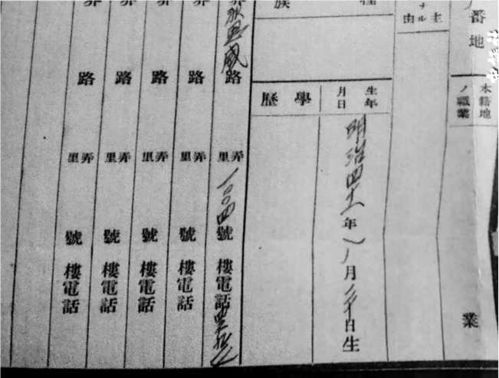 番地
本籍地
ノ職業
業
主
ナル
由
生年
月日
明治四十一年 月 日生
族
學歷
威路 弄里 一〇〇四號 樓電話
路 弄里 號 樓電話
路 弄里 號 樓電話
路 弄里 號 樓電話
路 弄里 號 樓電話